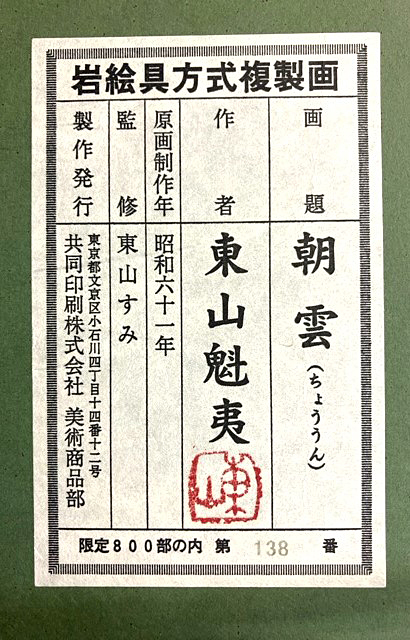 岩絵具方式複製画
画題
朝雲(ちょううん)
作者
東山魁夷
東山
原画制作年
昭和六十一年
監修
東山すみ
製作発行
東京都文京区小石川四丁目十四番十二号
共同印刷株式会社 美術商品部
限定800部の内 第 138 番